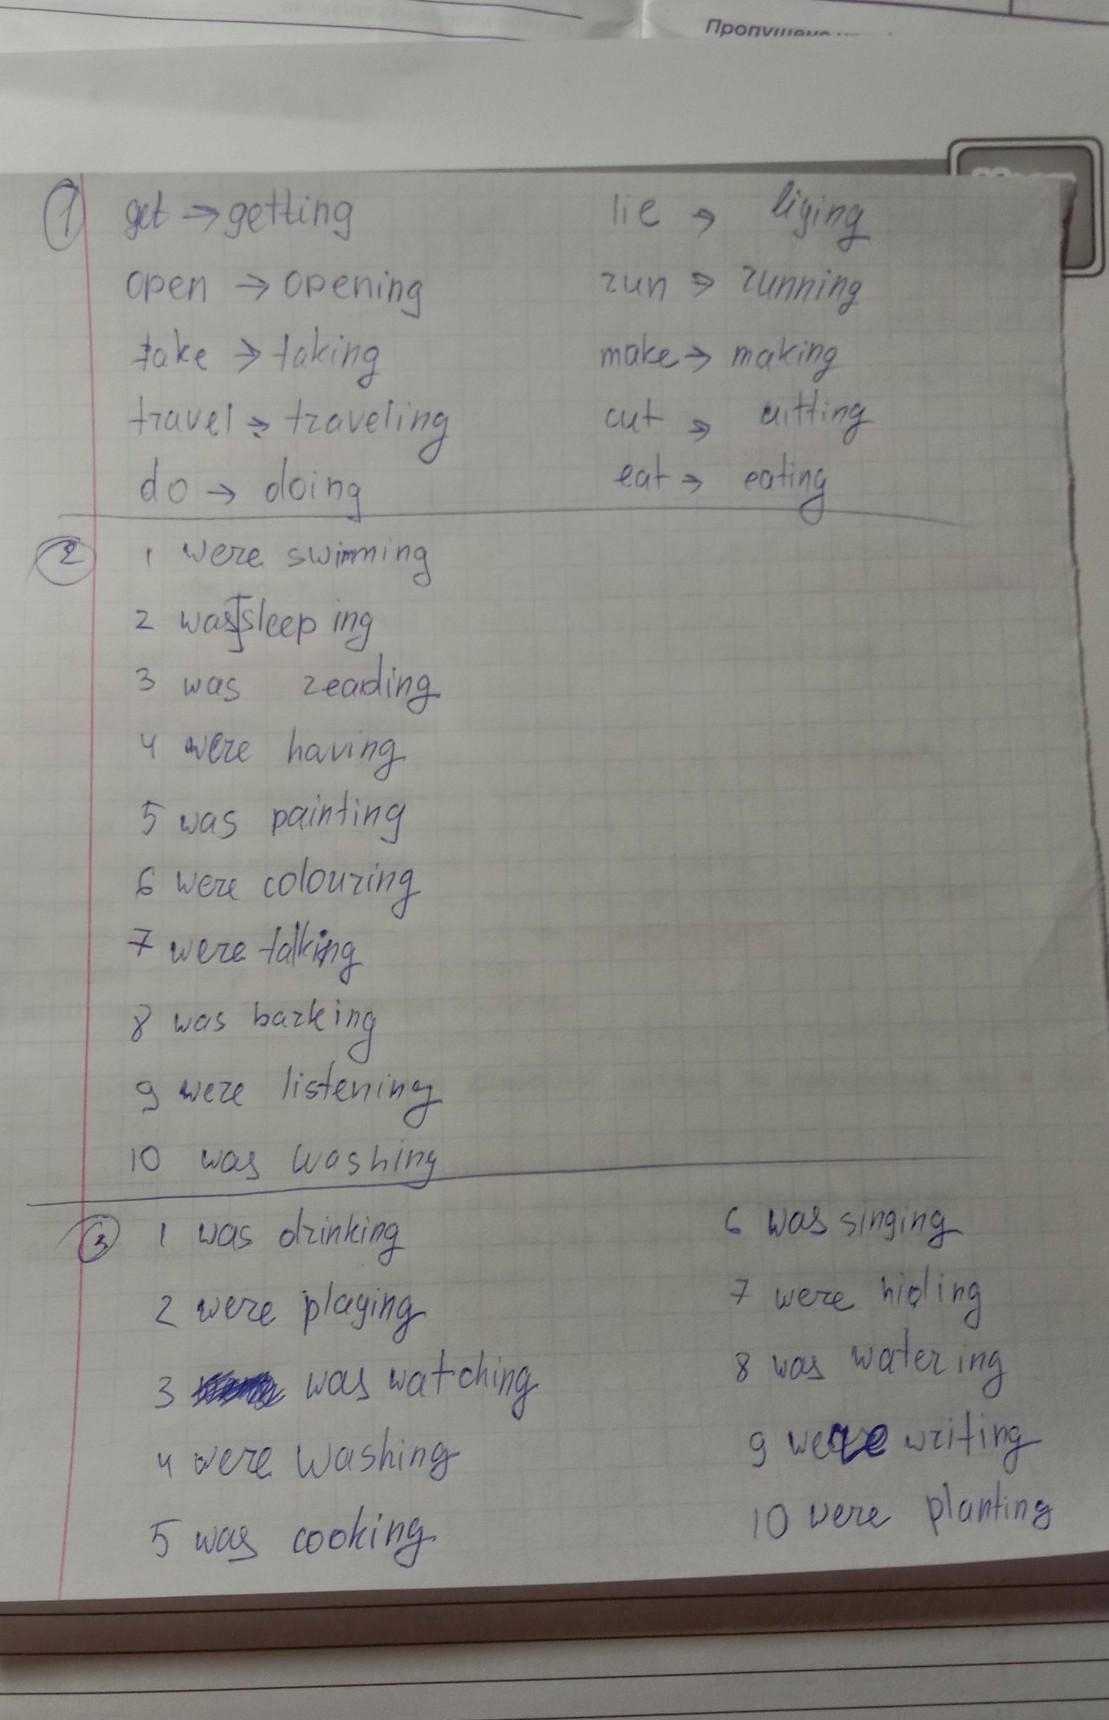 Пропущено
1 get → getting lie → liying
open → opening run → running
take → taking make → making
travel → traveling cut → cutting
do → doing eat → eating
2 1 were swimming
2 was sleeping
3 was reading
4 were having
5 was painting
6 were colouring
7 were talking
8 was barking
9 were listening
10 was washing
3 1 was drinking 6 was singing
2 were playing 7 were hiding
3 was watching 8 was watering
4 were washing 9 were writing
5 was cooking 10 were planting